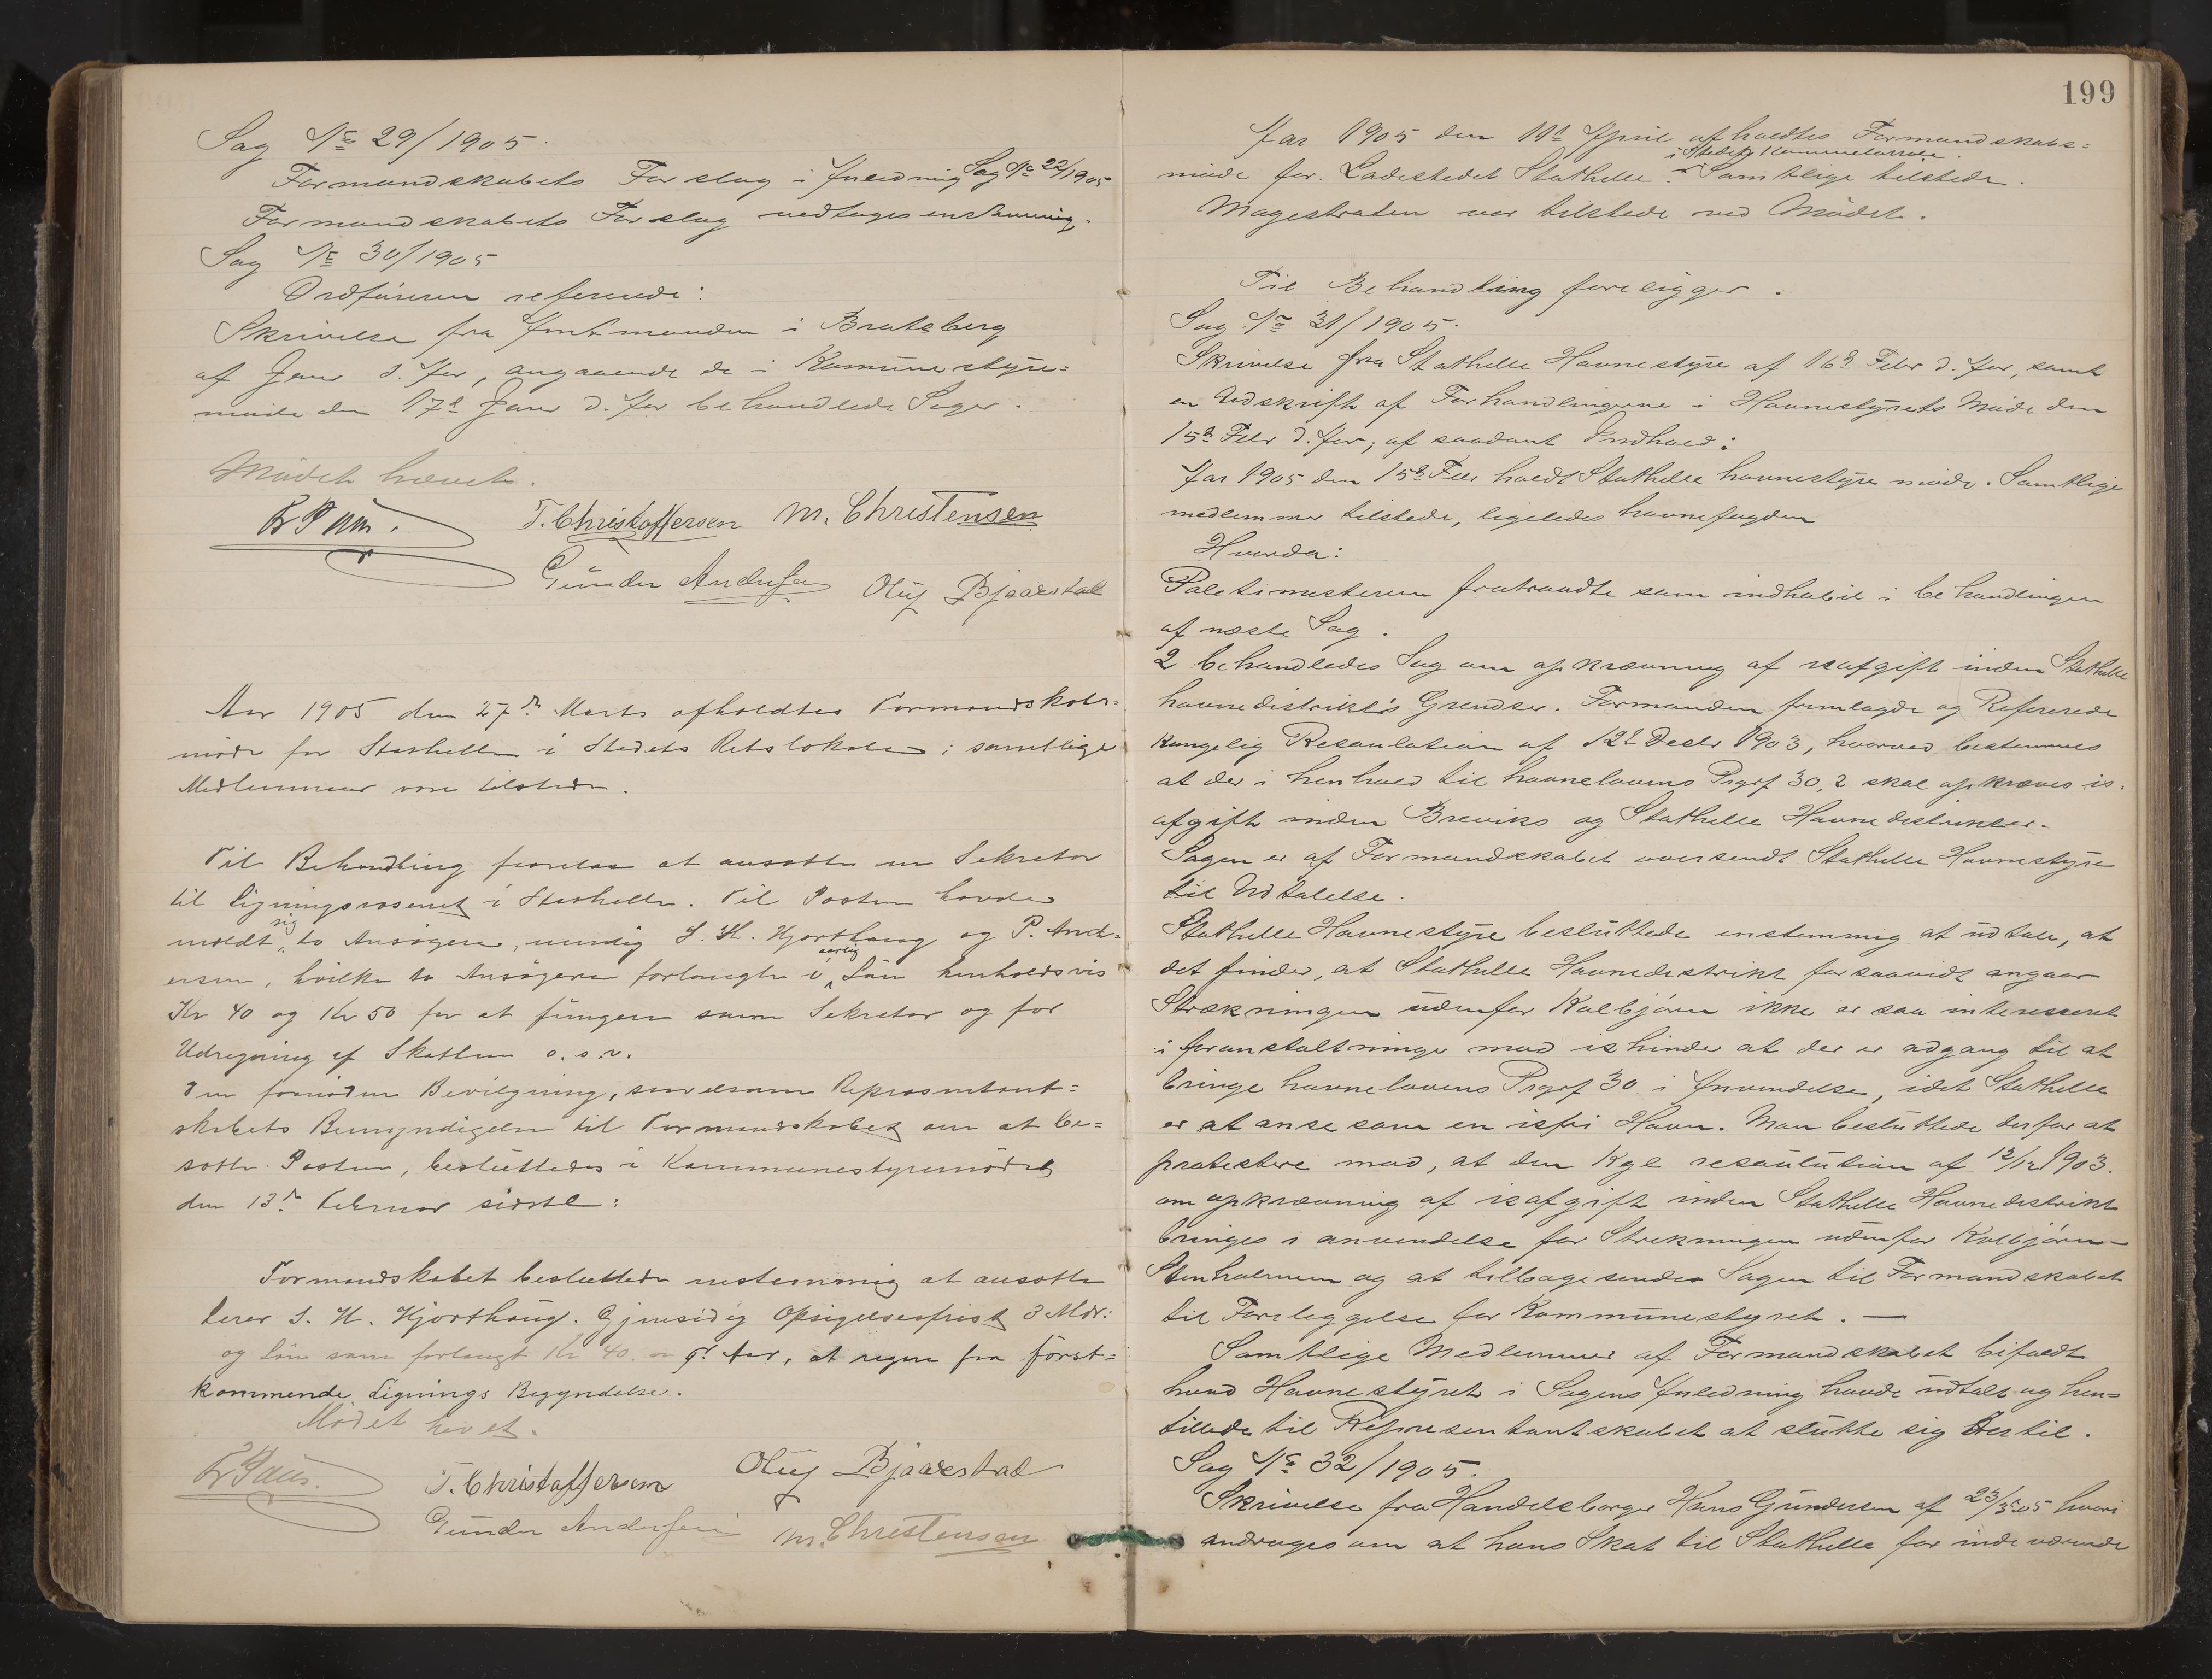 Sag No 29/1905.
Formandskabets Forslag i Anledning Sag No 22/1905
Formandskabets Forslag vedtoges enstemmig.
Sag No 30/1905
Ordføreren refererede:
Skrivelse fra Amtmanden i Bratsberg
af Janr d. Aar, angaaende de i Komunestyre=
møde den 17de Janr d. Aar behandlede Sager.
Mødet hævet.
T. Christoffersen M. Christensen
Gunder Andersen Oluf Bjaarstad
Aar 1905 den 27de Marts afholdtes Formandskabs-
møde for Stathelle i Stedets Retslokale; samtlige
Medlemmer vare tilstede.
Til Behandling forelaa at ansætte en Sekretær
til Ligningsvæsenet i Stathelle. Til Posten havde
meldt sig to Ansøgere, nemlig S. H. Hjorthaug og P. And-
ersen, hvilke to Ansøgere forlangte i aarlig Løn henholdsvis
Kr 40 og Kr 50 for at fungere som Sekretær og for
Udregning af Skatten o. s. v.
Den fornødne Bevilgning, saavelsom Repræsentant=
skabets Bemyndigelse til Formandskabet om at be=
sætte Posten, besluttedes i Kommunestyremødet
den 13de Februar sidstl:
Formandskabet besluttede enstemmig at ansætte
Lærer S. H. Hjorthaug. Gjensidig Opsigelsesfrist 3 Mdr:
og Løn som forlangt Kr 40. pr. Aar, at regne fra først=
kommende Lignings Begyndelse.
Mødet hævet.
Oluf Bjaarstad
T. Christoffersen
Gunder Andersen M. Christensen
199
Aar 1905 den 11te April afholdtes Formandskabs=
i Stedets Kommunelokale
møde for Ladestedet Stathelle. Samtlige tilstede.
Magistraten var tilstede ved Mødet.
Til Behandling foreligger.
Sag No 31/1905.
Skrivelse fra Stathelle Havnestyre af 16de Febr d. Aar, samt
en Udskrift af Forhandlingerne i Havnestyrets Møde den
15de Febr d. Aar, af saadant Indhold:
Aar 1905 den 15de Febr holdt Stathelle havnestyre møde. Samtlige
medlemmer tilstede, ligeledes havnefogden
Hvorda:
Politimesteren fratraadte som inhabil i behandlingen
af næste Sag.
2 behandledes Sag om opkrævning af isafgift inden Stathelle
havnedistrikts Grendser. Formanden fremlagde og Refererede
Kongelig Resoulution af 12te Decbr 1903, hvorved bestemmes
at der i henhold til havnelovens Prgrf 30, 2 skal opkræves is-
afgift inden Breviks og Stathelle Havnedistrikter.
Sagen er af Formandskabet oversendt Stathelle Havnestyre
til Udtalelse.
Stathelle Havnestyre besluttede enstemmig at udtale, at
det finder, at Stathelle Havnedistrikt forsaavidt angaar
Strækningen udenfor Kalbjørn ikke er saa interesseret
i foranstaltninger mod ishinder at der er adgang til at
bringe havnelovens Prgrf 30 i Anvendelse, idet Stathelle
er at anse som en isfri Havn. Man besluttede derfor at
protestere mod, at den Kgl resoulution af 12/12 1903.
om opkrævning af isafgift inden Stathelle Havnedistrikt
bringes i anvendelse for Strekningen udenfor Kalbjørn-
Stenholmen og at tilbagesendes Sagen til Formandskabet
til Foreleggelse for Kommunestyret. —
Samtlige Medlemmer af Formandskabet bifaldt
hvad Havnestyret i Sagens Anledning havde udtalt og hen=
stillede til Repræsentantskabet at slutte sig dertil.
Sag No 32/1905.
Skrivelse fra Handelsborger Hans Gundersen af 23/3 05 hvori
andrages om at hans Skat til Stathelle for indeværende